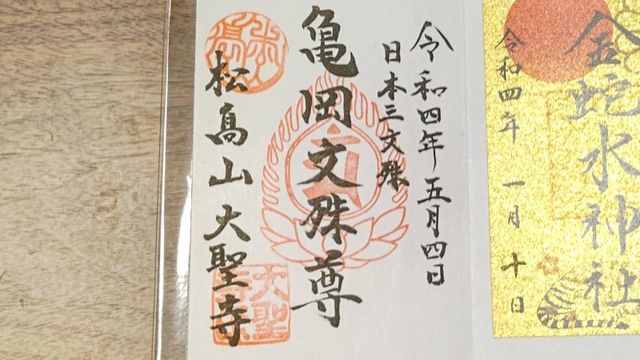 令和四年五月四日
日本三文殊
亀岡文殊尊
松高山大聖寺
金蛇水神社
令和四年一月十日